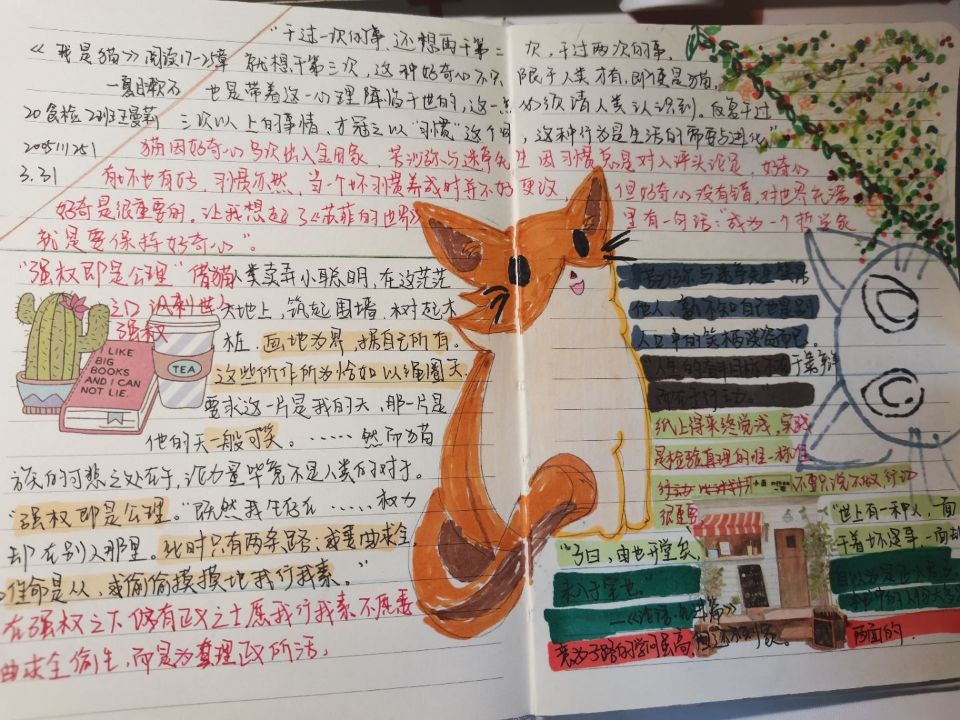 "干过一次的事，还想再干第二次，干过两次的事，
《我是猫》阅读17-25章 就想干第三次，这种好奇心不只限于人类才有，即便是猫，
—夏目漱石 也是带着这一心理降临于世的，这一点必须请人类认识到。反复干过
20食检2班王曼莉 三次以上的事情，才冠之以"习惯"这个词，这种行为是生活的需要与进化"
3.31 猫因好奇心多次出入金田家，苦沙弥与迷亭先生因习惯总是对人评头论足，好奇心
有坏也有好，习惯亦然，当一个坏习惯养成时并不好更改，但好奇心没有错，对世界充满
好奇是很重要的。让我想起了《苏菲的世界》里有一句话："成为一个哲学家
就是要保持好奇心"。
"强权即是公理"借猫
之口讽刺世
强权
人类卖弄小聪明，在这茫茫
大地上，筑起围墙，树起木
桩，画地为界，据自己所有。
这些所作所为恰如以绳圈天，
要求这一片是我的天，那一片是
他的天一般可笑。……然而为猫
族的可悲之处在于，论力量毕竟不是人类的对手。
"强权即是公理。"既然我生存在……权力
却在别人那里。此时只有两条路：或委曲求全，
唯命是从，或偷偷摸摸地我行我素。"
在强权之下偶有正义之士愿我行我素，不愿委
曲求全偷生，而是为真理正义所活，
I LIKE
BIG
BOOKS
AND I CAN
NOT LIE.
TEA
苦沙弥与迷亭先生
他人，却不知自己也是别
人口中的笑柄谈资而已
人生的
而在于行动。
纸上得来终觉浅，实践
是检验真理的唯一标准
不要只说不做，行动
很重要
"子曰，由也升堂矣，
未入于室也"
—《论语·先进篇》
"世上有一种人，一面
干着坏事，一面却
两面的